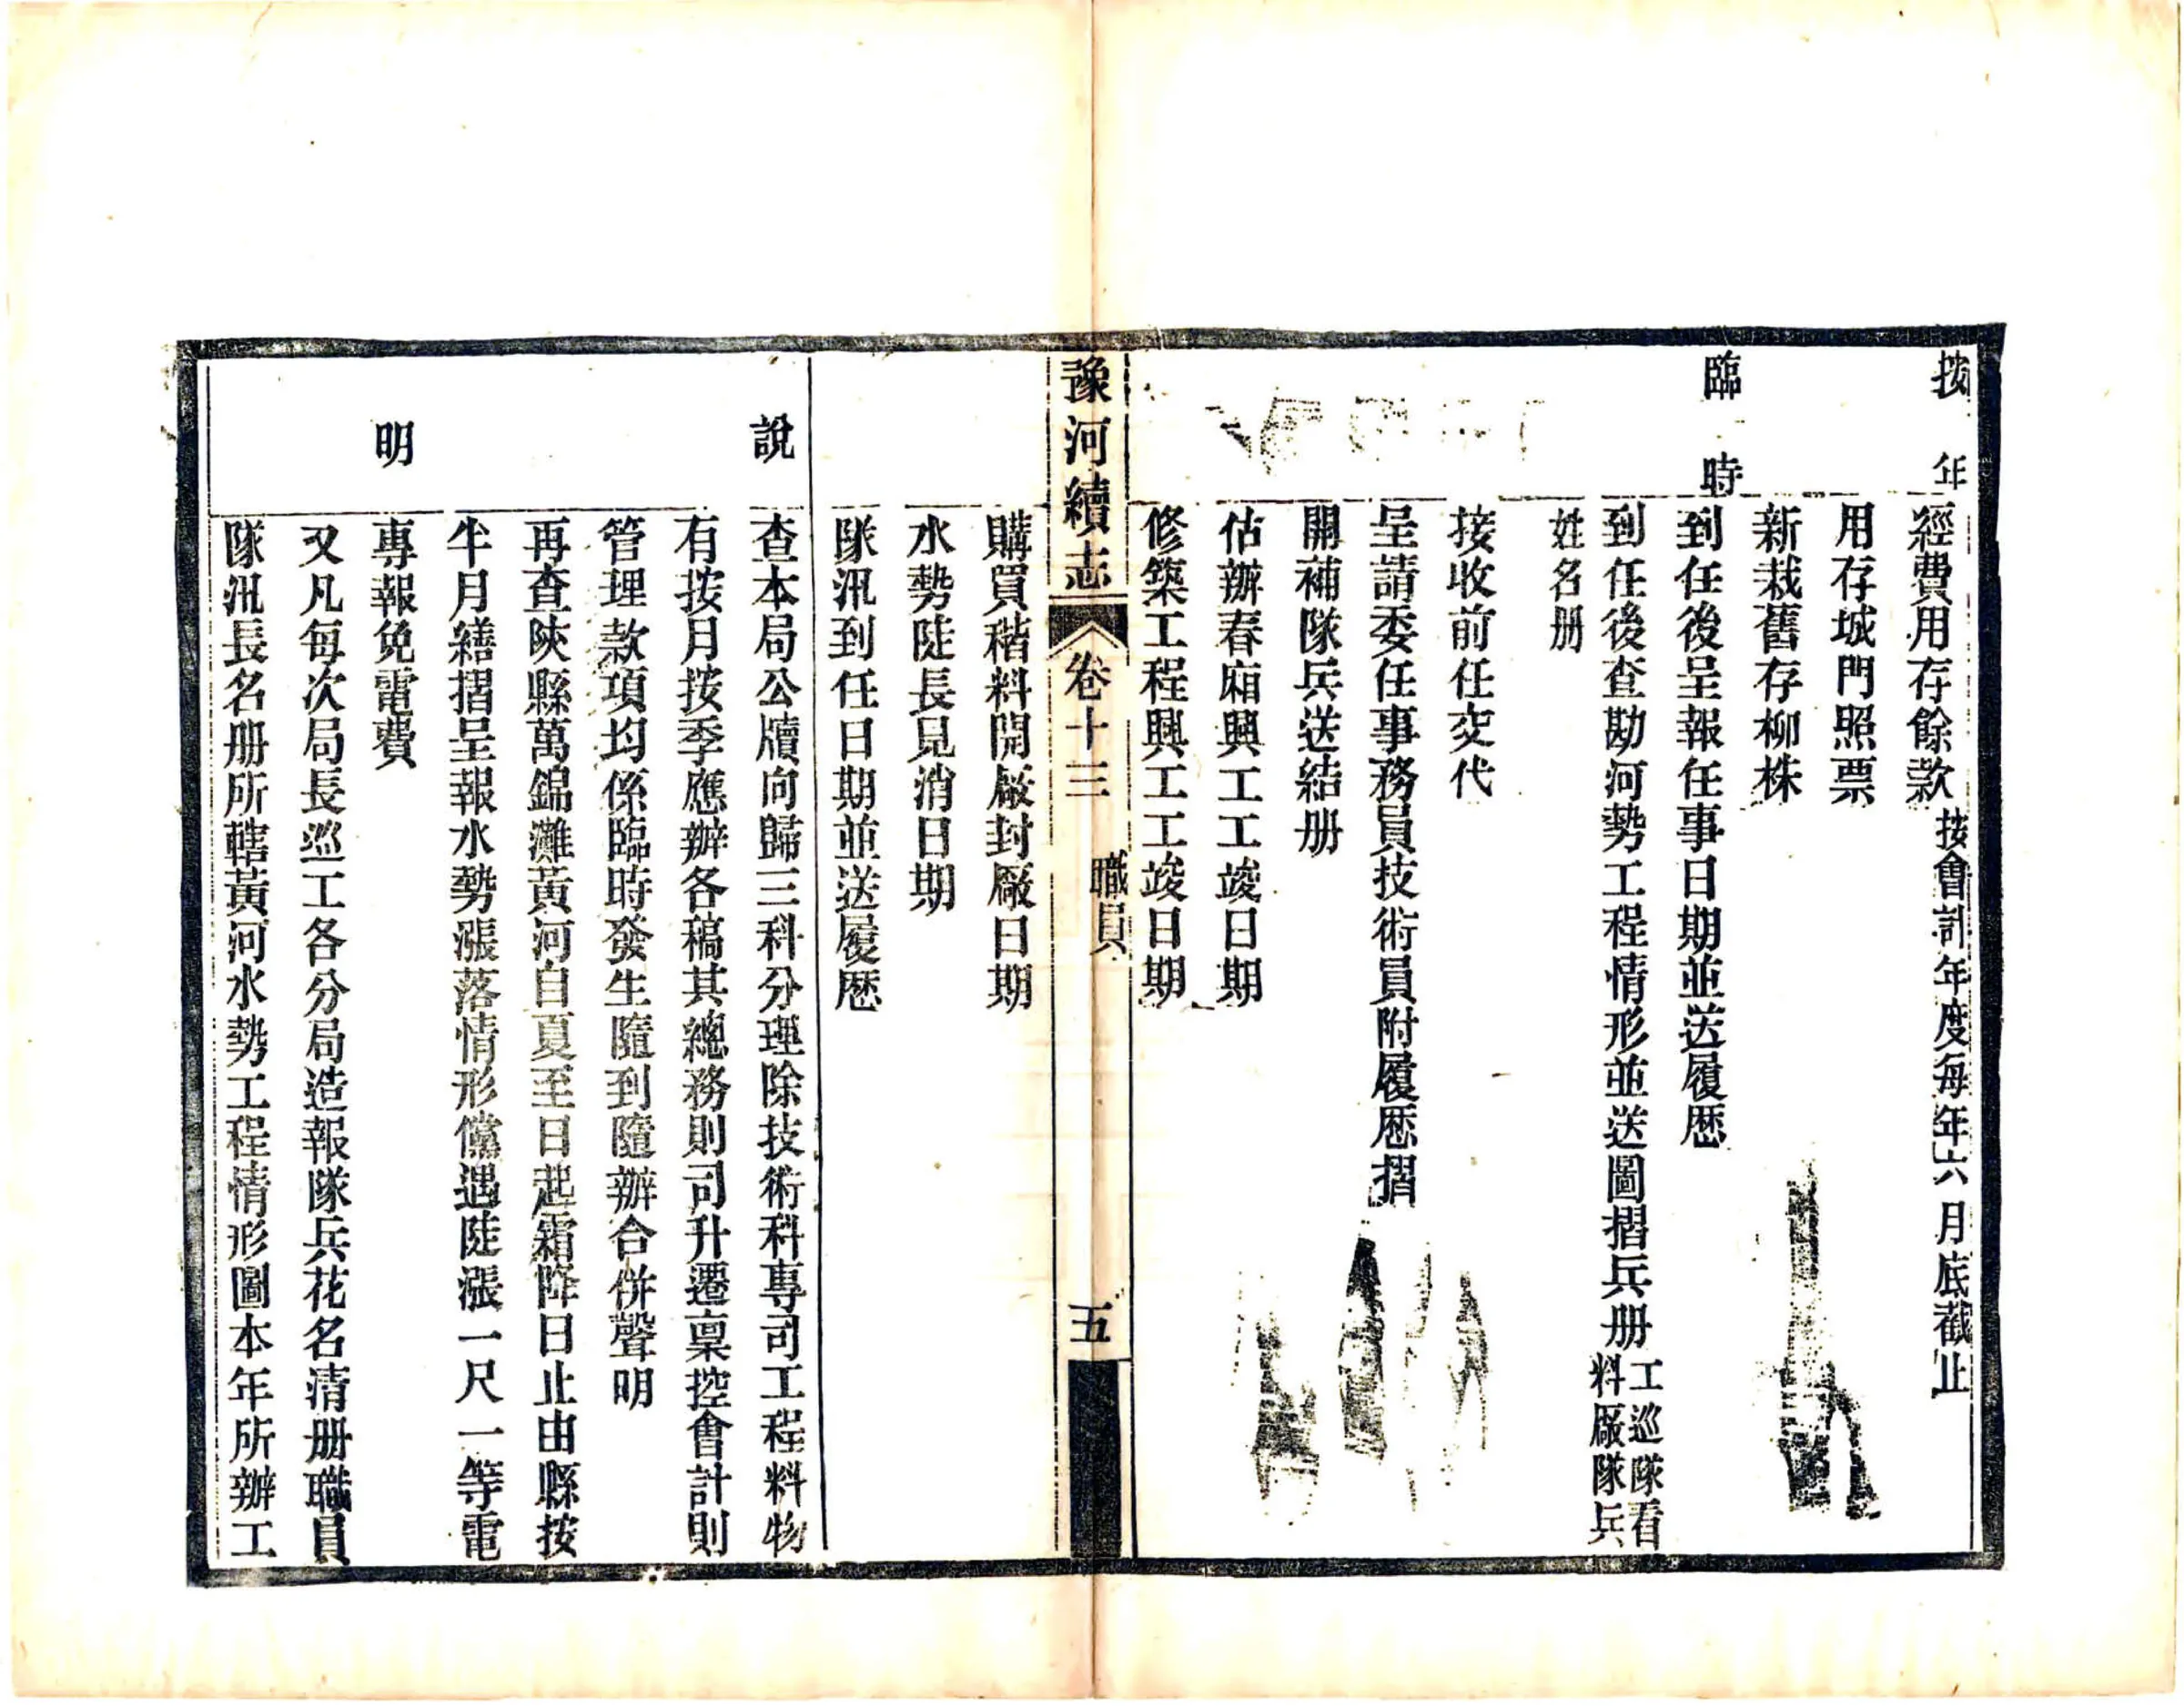 按年
經費用存餘款按會計年度每年六月底截止
用存城門照票
新栽舊存柳株
臨時
到任後呈報任事日期並送履歷
到任後查勘河勢工程情形並送圖摺兵册工巡隊看料厰隊兵
姓名册
接收前任交代
呈請委任事務員技術員附履歷摺
開補隊兵送結册
估辦春廂興工工竣日期
修築工程興工工竣日期
豫河續志 卷十三 職員 五
購買稭料開厰封厰日期
水勢陡長見消日期
隊汛到任日期並送履歷
說明
查本局公牘向歸三科分理除技術科專司工程料物
有按月按季應辦各稿其總務則司升遷稟控會計則
管理款項均係臨時發生隨到隨辦合併聲明
再查陝縣萬錦灘黃河自夏至日起霜降日止由縣按
半月繕摺呈報水勢漲落情形儻遇陡漲一尺一等電
專報免電費
又凡每次局長巡工各分局造報隊兵花名清册職員
隊汛長名册所轄黃河水勢工程情形圖本年所辦工